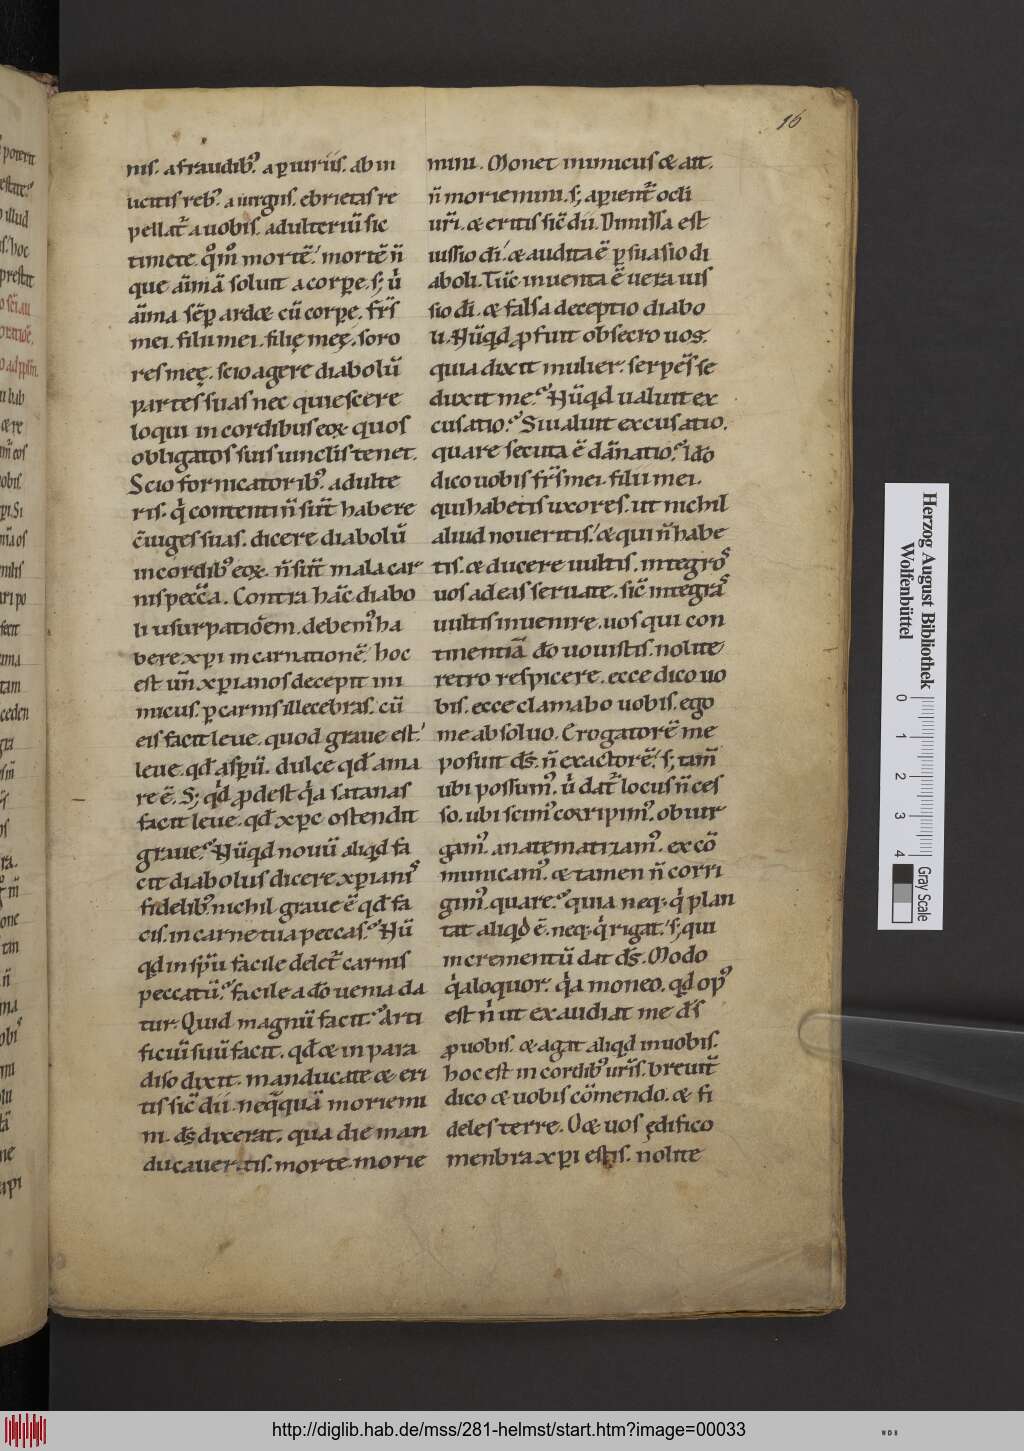 16
nis. a fraudib᷒. a ꝑiuriis. ab in
licitis reb᷒. a iurgiis. ebrietas re
pellat᷑ a uobis. adulteriū sic
timete. qͦmͦ mortē. mortē n̄
que aīmā soluit a corꝑe. s; ů
aīma sēꝑ ardæ cū corꝑe. fr̄s
mei. filii mei. filię meę. soro
res meę. scio agere diabolū
partes suas nec quiescere
loqui in cordibus eoꝝ quos
obligatos suis uinclis tenet.
Scio fornicatorib᷒. adulte
ris. qͥ contenti n̄ sūt habere
c̄iuges suas. dicere diabolū
in cordib᷒ eoꝝ. n̄ sūt mala car
nis pecc̄a. Contra hāc diabo
li usurpatiōem. debem᷒ ha
bere xp̄i incarnationē. hoc
est uñ xp̄ianos decepit ini
micus. ꝑ carnis illecebras. cū
eis facit leue. quod graue est.
leue. qđ asꝑū. dulce qđ ama
re ē. S; qͥd ꝓdest qͥa satanas
facit leue. qđ xp̄c ostendit
graue. Nūqͥd nouū aliqͥd fa
cit diabolus dicere xp̄ianis
fidelib᷒. nichil graue ē qđ fa
cis. in carne tua peccas. Nū
qͥd in sp̄u facile delet᷑ carnis
peccatū. facile a dō uenia da
tur. Quid magnū facit. Arti
ficiū suū facit. qđ æ in para
diso dixit. manducate æ eri
tis sic̄ dii. neqͣquā moriemi
ni. ds̄ dixerat. qua die man
ducaueritis. morte morie
mini. Monet inimicus æ ait.
n̄ moriemini. s; aꝑient᷑ ocl̄i
ur̄i. æ eritis sic̄ dii. Dimissa est
iussio dī. æ audita ē ꝑsuasio di
aboli. Tūc inuenta ē uera uis
sio dī. æ falsa deceptio diabo
li. Nūqͥd ꝓfuit obsecro uos.
quia dixit mulier. serpēs se
duxit me. Nūqͥd ualuit ex
cusatio. Si ualuit excusatio.
quare secuta ē dānatio. Idō
dico uobis fr̄s mei. filii mei.
qui habetis uxores. ut nichil
aliud noueritis. æ qui n̄ habe
tis. æ ducere uultis. integros
uos ad eas seruate. sic̄ integras
uultis inuenire. uos qui con
tinentiā dō uouistis. nolite
retro respicere. ecce dico uo
bis. ecce clamabo uobis. ego
me absoluo. Erogatorē me
posuit ds̄. n̄ exactorē. s; tam̄
ubi possum᷒. ů dat᷑ locus n̄ ces
so. ubi scim᷒ corripim᷒. obiur
gam᷒. anatematizam᷒. excō
municam᷒. æ tamen n̄ corri
gim᷒. quare. quia neq; qͥ plan
tat aliqͥd ē. neq; qͥ rigat. s; qui
incrementū dat ds̄. Modo
qͥa loquor. qͥa moneo. qͥd op᷒
est nͥ ut exaudiat me ds̄
ꝓ uobis. æ agat aliqͥd in uobis.
hoc est in cordib᷒ ur̄is. breuit᷑
dico æ uobis cōmendo. æ fi
deles terre. Oæ uos ędifico
menbra xp̄i estis. nolite
Herzog August Bibliothek
Wolfenbüttel
0 1 2 3 4
Gray Scale
http://diglib.hab.de/mss/281-helmst/start.htm?image=00033